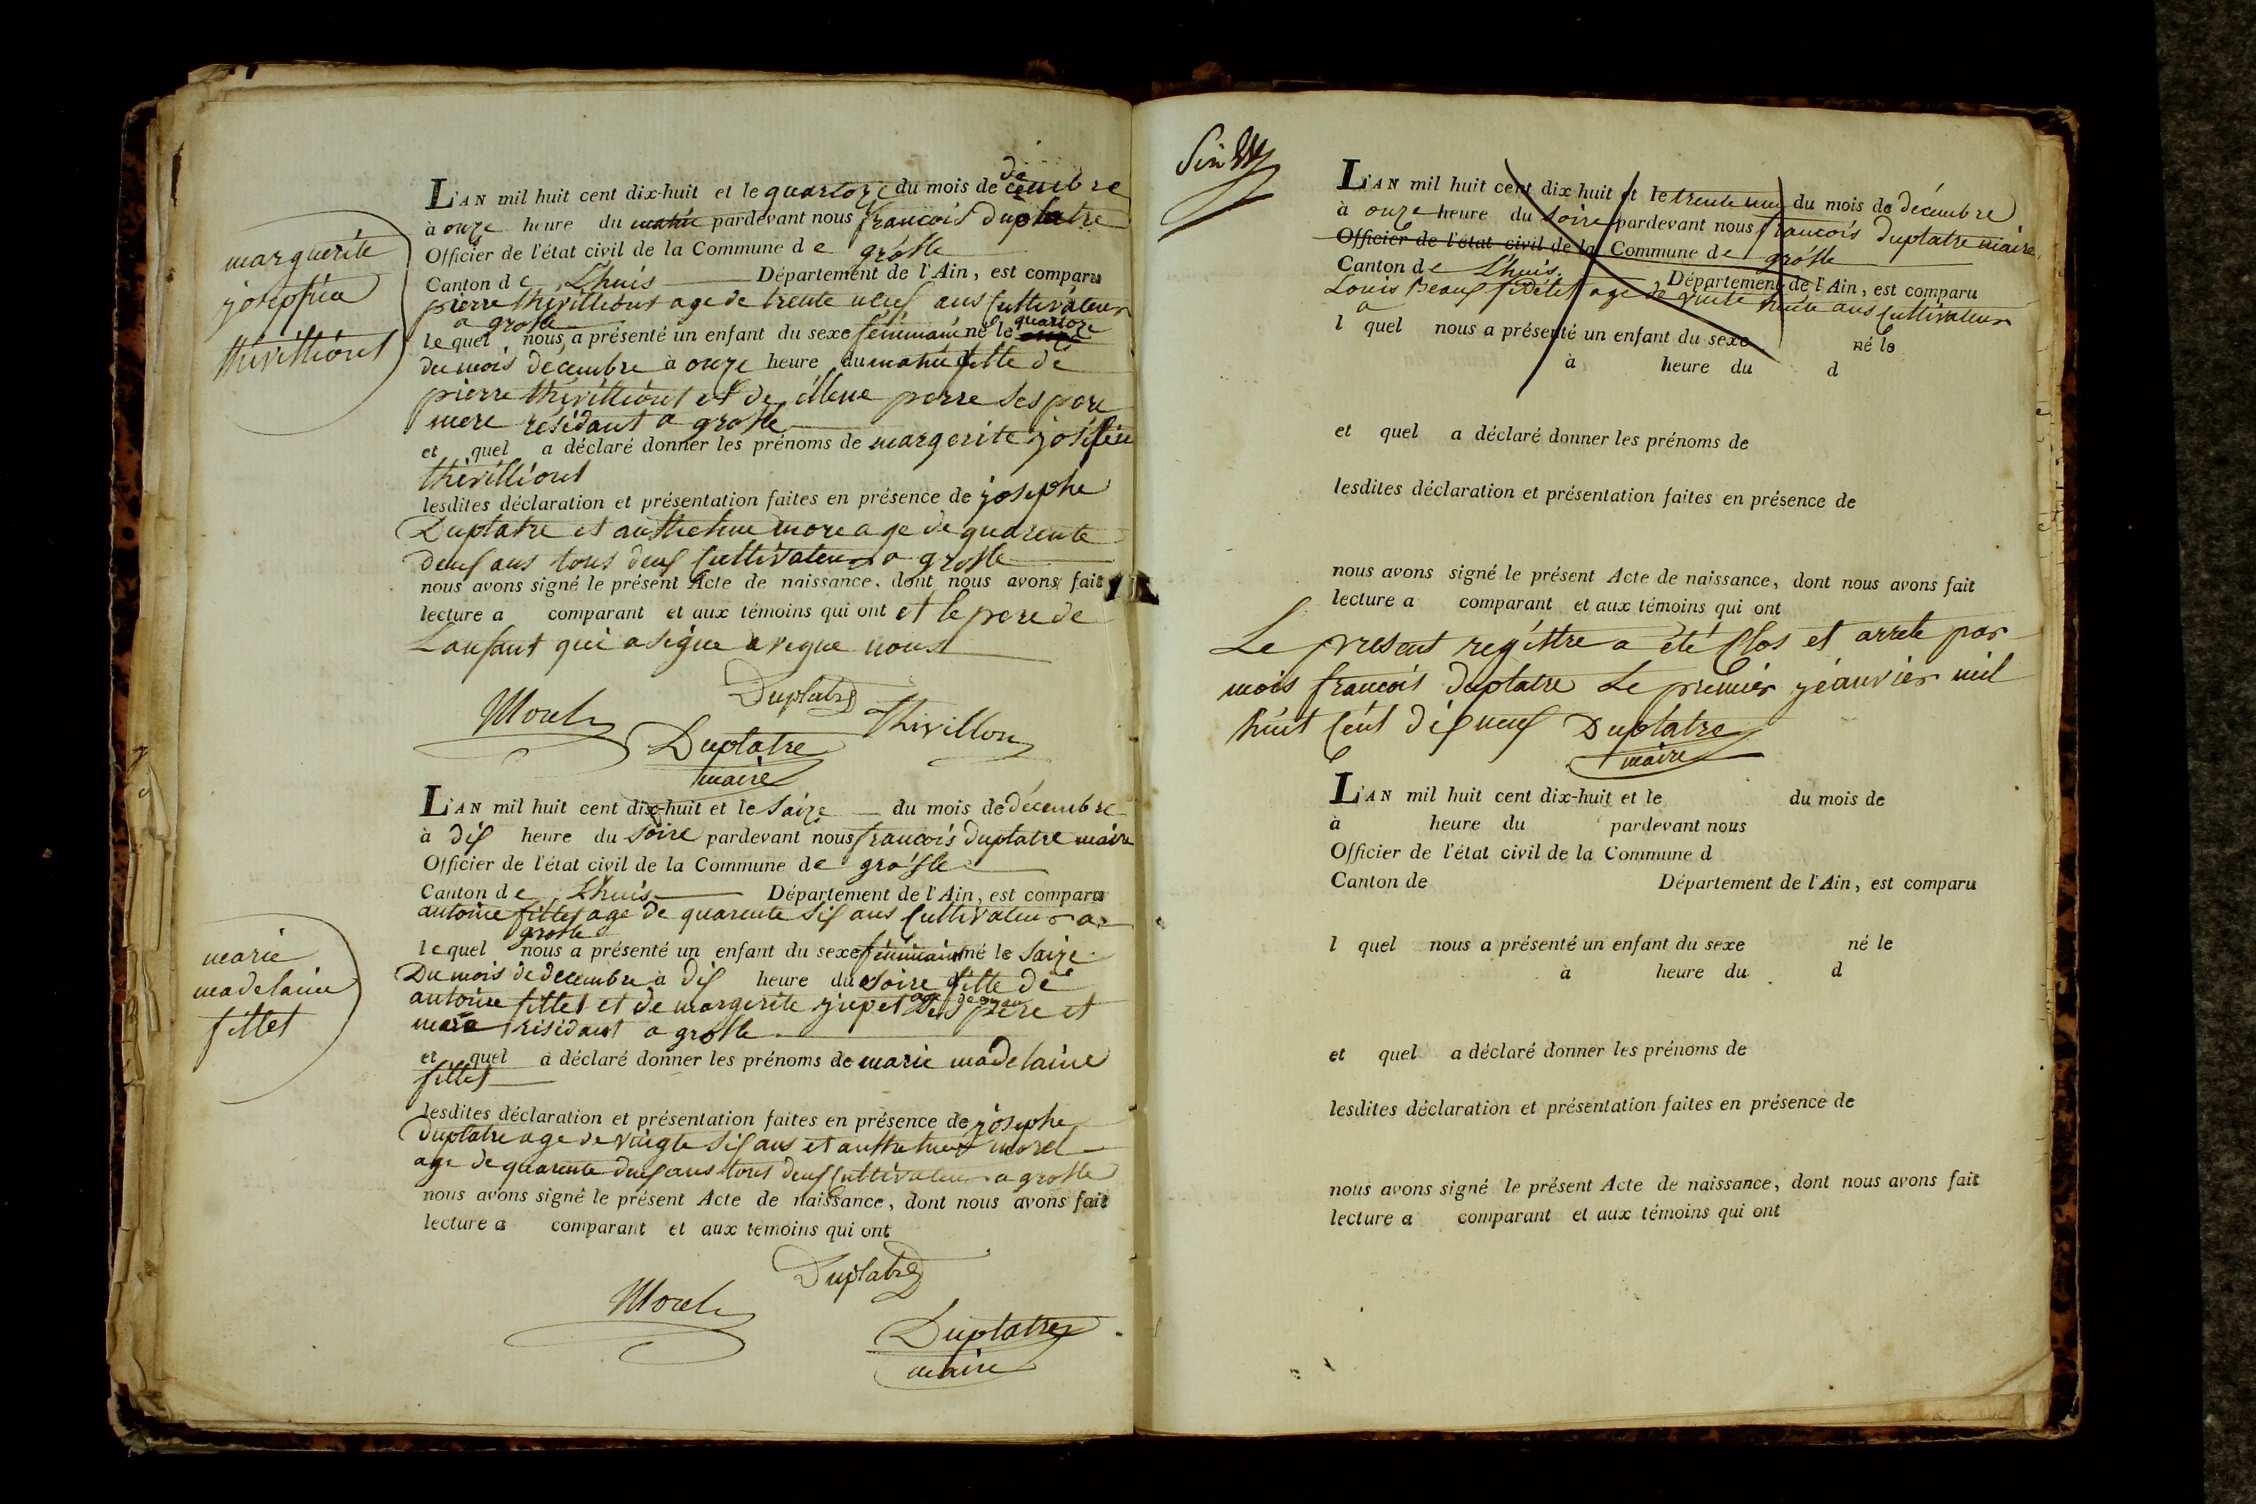 marguerite
josephia
thévilliont
L'AN mil huit cent dix-huit et le quatorze du mois de décembre
à onze heure du matin pardevant nous francois duplatre
Officier de l'état civil de la Commune de grôsle
Canton de Lhuis Département de l'Ain, est comparu
pierre thévilliont age de trente neuf ans cultivateur
a grosle
lequel nous a présenté un enfant du sexe féminain né le quatorze
du mois décembre à onze heure du matin fille de
pierre thévilliont et de perre ses pere
mere résidant a grosle
et quel a déclaré donner les prénoms de margerite
thévilliont
lesdites déclaration et présentation faites en présence de josephe
Duplatre et more age de quarente
deuf ans tous deuf cultivateur a grosle
nous avons signé le présent Acte de naissance, dont nous avons fait
lecture a comparant et aux témoins qui ont et le pere de
Lanfant qui a signe aveque nous
Duplatre
Morel Thivillon
Duplatre
maire
L'AN mil huit cent dix-huit et le saize du mois de décembre
à dis heure du soire pardevant nous francois duplatre maire
Officier de l'état civil de la Commune de grôsle
Canton de Lhuis Département de l'Ain, est comparu
antoine fillet age de quarente sis ans cultivateur a
grosle
lequel nous a présenté un enfant du sexe féminaint né le saize
Du mois de decembre à dis heure du soire fille de
antoine fillet et de margerite jupet père et
mere résidant a grosle
et quel a déclaré donner les prénoms de marie madelaine
fillet
marie
madelaine
fillet
lesdites déclaration et présentation faites en présence de josephe
duplatre age de vingte sis ans et morel
age de quarente deuf ans tous deuf cultivateur a grosle
nous avons signé le présent Acte de naissance, dont nous avons fait
lecture a comparant et aux témoins qui ont
Duplatre
Morel
Duplatre
maire
L'AN mil huit cent dix-huit et le trente un du mois de décembre
à onze heure du soire pardevant nous francois duplatre maire
Officier de l'état civil de la Commune de grôsle
Canton de Lhuis Département de l'Ain, est comparu
Louis Beauf age de vinte huite ans cultivateur
a
l quel nous a présenté un enfant du sexe né le
à heure du d
et quel a déclaré donner les prénoms de
lesdites déclaration et présentation faites en présence de
nous avons signé le présent Acte de naissance, dont nous avons fait
lecture a comparant et aux témoins qui ont
Le present regittre a été Clos et arrete par
mois francois duplatre Le premier jéanvier mil
huit cent dis neuf Duplatre
maire
L'AN mil huit cent dix-huit et le du mois de
à heure du pardevant nous
Officier de l'état civil de la Commune d
Canton de Département de l'Ain, est comparu
l quel nous a présenté un enfant du sexe né le
à heure du d
et quel a déclaré donner les prénoms de
lesdites déclaration et présentation faites en présence de
nous avons signé le présent Acte de naissance, dont nous avons fait
lecture a comparant et aux témoins qui ont